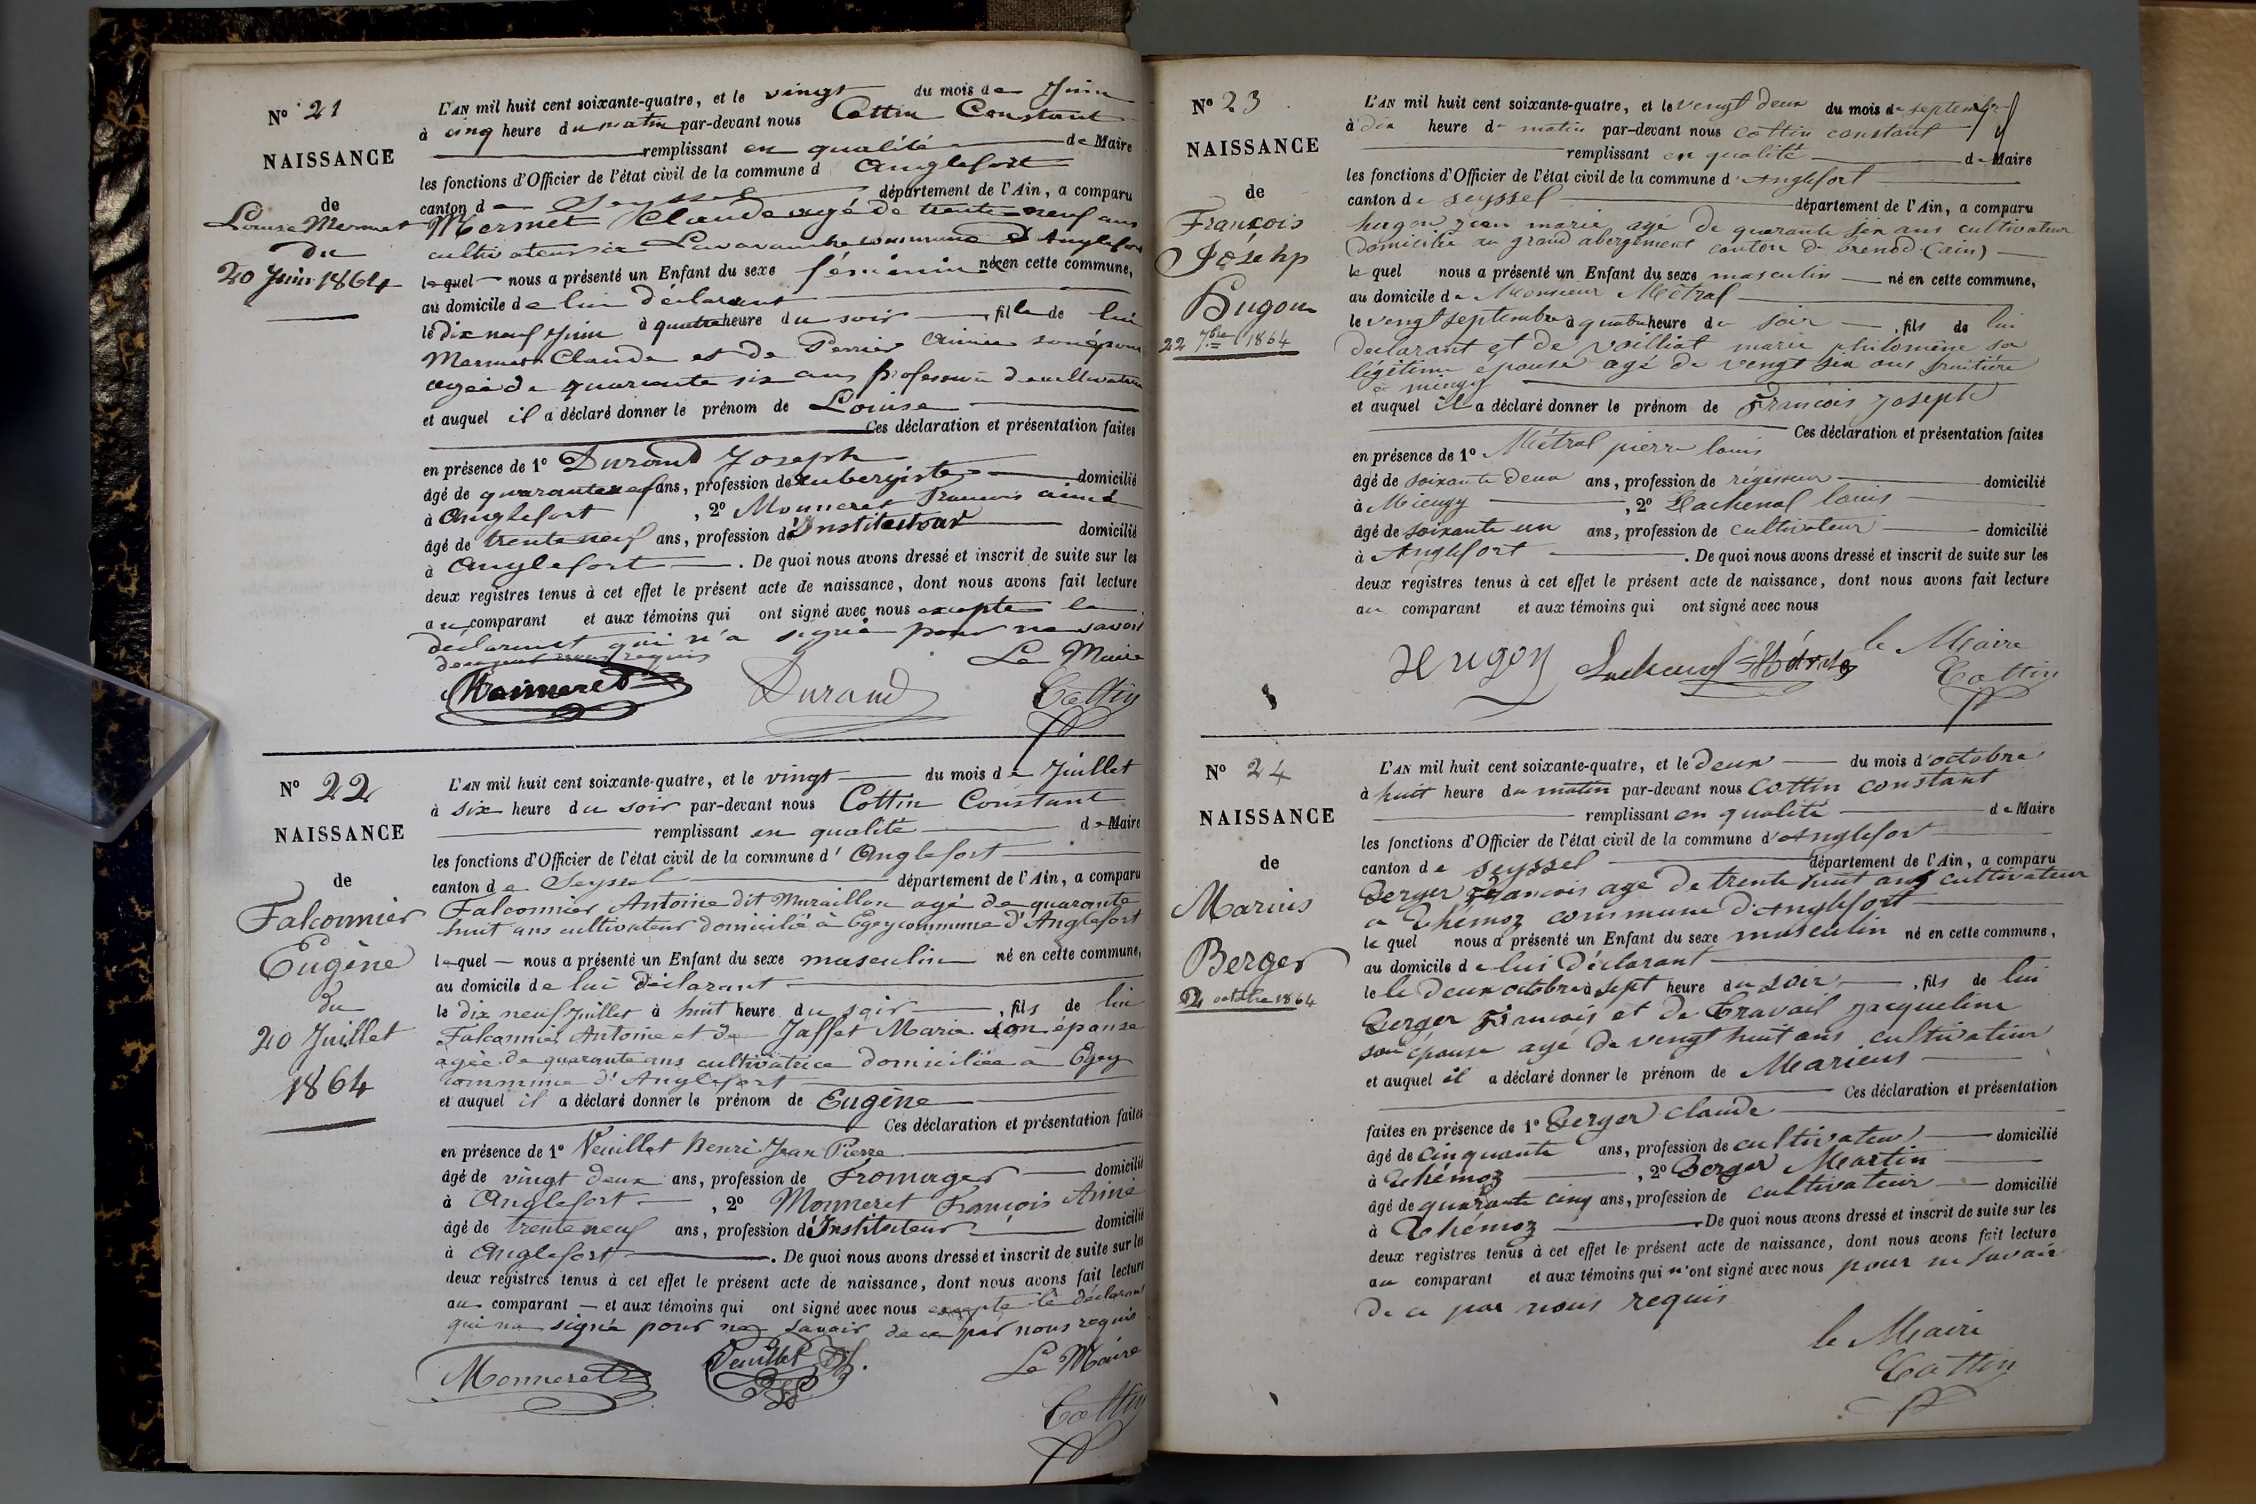 N° 21
NAISSANCE
de
Louise Mermet
du
20 Juin 1864
L'AN mil huit cent soixante-quatre, et le vingt du mois de Juin
à cinq heure du matin par-devant nous Cottin Constant
remplissant en qualité de Maire
les fonctions d'Officier de l'état civil de la commune d Anglefort
canton de Seyssel département de l'Ain, a comparu
Mermet Claude agé de trente-neuf ans
cultivateur à Lavavanche commune d'Anglefort
lequel nous a présenté un Enfant du sexe féminin née en cette commune,
au domicile de lui déclarant
le dix neuf Juin à quatre heure du soir, fille de lui
Mermet Claude et de Perrier Aimée son épouse
agée de quarante six ans profession de cultivateur
et auquel il a déclaré donner le prénom de Louise
Ces déclaration et présentation faites
en présence de 1° Durand Joseph
âgé de quarante neuf ans, profession de aubergiste domicilié
à Anglefort, 2° Monneret François aimé
âgé de trente neuf ans, profession d'Instituteur domicilié
à Anglefort. De quoi nous avons dressé et inscrit de suite sur les
deux registres tenus à cet effet le présent acte de naissance, dont nous avons fait lecture
au comparant et aux témoins qui ont signé avec nous excepté le
déclarant qui n'a signé pour ne savoir
de ce par nous requis
Le Maire
Monneret Durand Cottin
N° 22
NAISSANCE
de
Falconnier
Eugène
du
20 Juillet
1864
L'AN mil huit cent soixante-quatre, et le vingt du mois de Juillet
à six heure du soir par-devant nous Cottin Constant
remplissant en qualité de Maire
les fonctions d'Officier de l'état civil de la commune d'Anglefort
canton de Seyssel département de l'Ain, a comparu
Falconnier Antoine dit Muraillon agé de quarante
huit ans cultivateur domicilié à Egey commune d'Anglefort
lequel nous a présenté un Enfant du sexe masculin né en cette commune,
au domicile de lui déclarant
le dix neuf Juillet à huit heure du soir, fils de lui
Falconnier Antoine et de Jaffet Marie son épouse
agée de quarante ans cultivatrice domiciliée à Egey
commune d'Anglefort
et auquel il a déclaré donner le prénom de Eugène
Ces déclaration et présentation faites
en présence de 1° Veuillet henri Jean Pierre
âgé de vingt deux ans, profession de fromager domicilié
à Anglefort, 2° Monneret François Aimé
âgé de trente neuf ans, profession d'Instituteur domicilié
à Anglefort. De quoi nous avons dressé et inscrit de suite sur les
deux registres tenus à cet effet le présent acte de naissance, dont nous avons fait lecture
au comparant et aux témoins qui ont signé avec nous excepté le déclarant
qui n'a signé pour ne savoir de ce par nous requis
Le Maire
Monneret Veuillet Cottin
N° 23
NAISSANCE
de
François
Josehp
Hugon
22 7bre 1864
L'AN mil huit cent soixante-quatre, et le vengt deux du mois de septembre
à dix heure de matin par-devant nous cottin constant
remplissant en qualité de Maire
les fonctions d'Officier de l'état civil de la commune d'Anglefort
canton de seyssel département de l'Ain, a comparu
hugon jean marie agé de quarante six ans cultivateur
domicilié au grand abergement canton de brenod (ain)
lequel nous a présenté un Enfant du sexe masculin né en cette commune,
au domicile de Monsieur Métral
le vengt septembre à quatre heure du soir, fils de lui
declarant et de vuilliat marie philomène sa
légitime épouse agé de vengt six ans fruitière
à mieugy
et auquel il a déclaré donner le prénom de François joseph
Ces déclaration et présentation faites
en présence de 1° Métral pierre louis
âgé de soixante deux ans, profession de régisseur domicilié
à Mieugy, 2° Lachenal louis
âgé de soixante un ans, profession de cultivateur domicilié
à Anglefort. De quoi nous avons dressé et inscrit de suite sur les
deux registres tenus à cet effet le présent acte de naissance, dont nous avons fait lecture
au comparant et aux témoins qui ont signé avec nous
le Maire
Hugon Lachenal Métral Cottin
N° 24
NAISSANCE
de
Marius
Berger
2 octobre 1864
L'AN mil huit cent soixante-quatre, et le deux du mois d'octobre
à huit heure du matin par-devant nous cottin constant
remplissant en qualité de Maire
les fonctions d'Officier de l'état civil de la commune d'Anglefort
canton de seyssel département de l'Ain, a comparu
Berger François age de trente huit ans cultivateur
a Thémoz commune d'Anglefort
lequel nous a présenté un Enfant du sexe masculin né en cette commune,
au domicile de lui déclarant
le le deux octobre à sept heure du soir, fils de lui
Berger François et de Travail jacqueline
son épouse agé de vengt huit ans cultivateur
et auquel il a déclaré donner le prénom de Marieus
Ces déclaration et présentation
faites en présence de 1° Berger claude
âgé de cinquante ans, profession de cultivateur domicilié
à Thémoz, 2° Berger Martin
âgé de quarante cinq ans, profession de cultivateur domicilié
à Thémoz. De quoi nous avons dressé et inscrit de suite sur les
deux registres tenus à cet effet le présent acte de naissance, dont nous avons fait lecture
au comparant et aux témoins qui n'ont signé avec nous pour ne savoir
de ce par nous requis
le Maire
Cottin